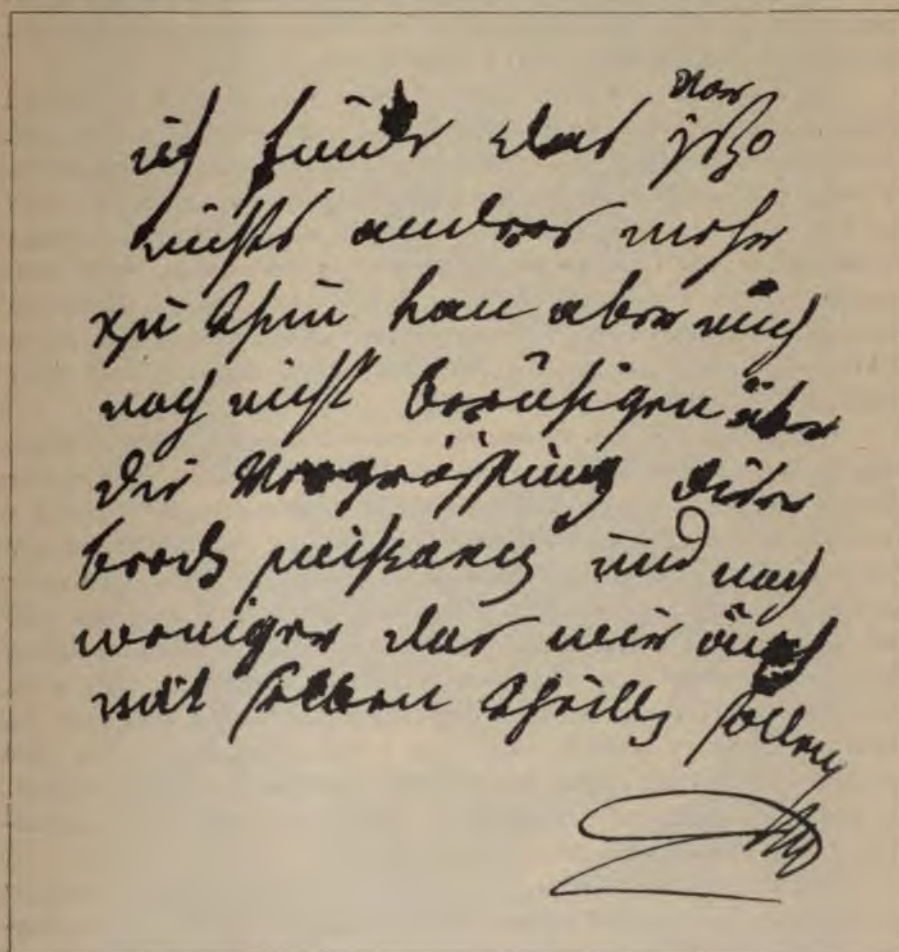 vor
ich finde das jezo
nichts anders mehr
zu thun kan aber mich
noch nicht beruhigen über
die Vergrössung diser
puissancen und noch
weniger das wir auch
mit selben theillen sollen